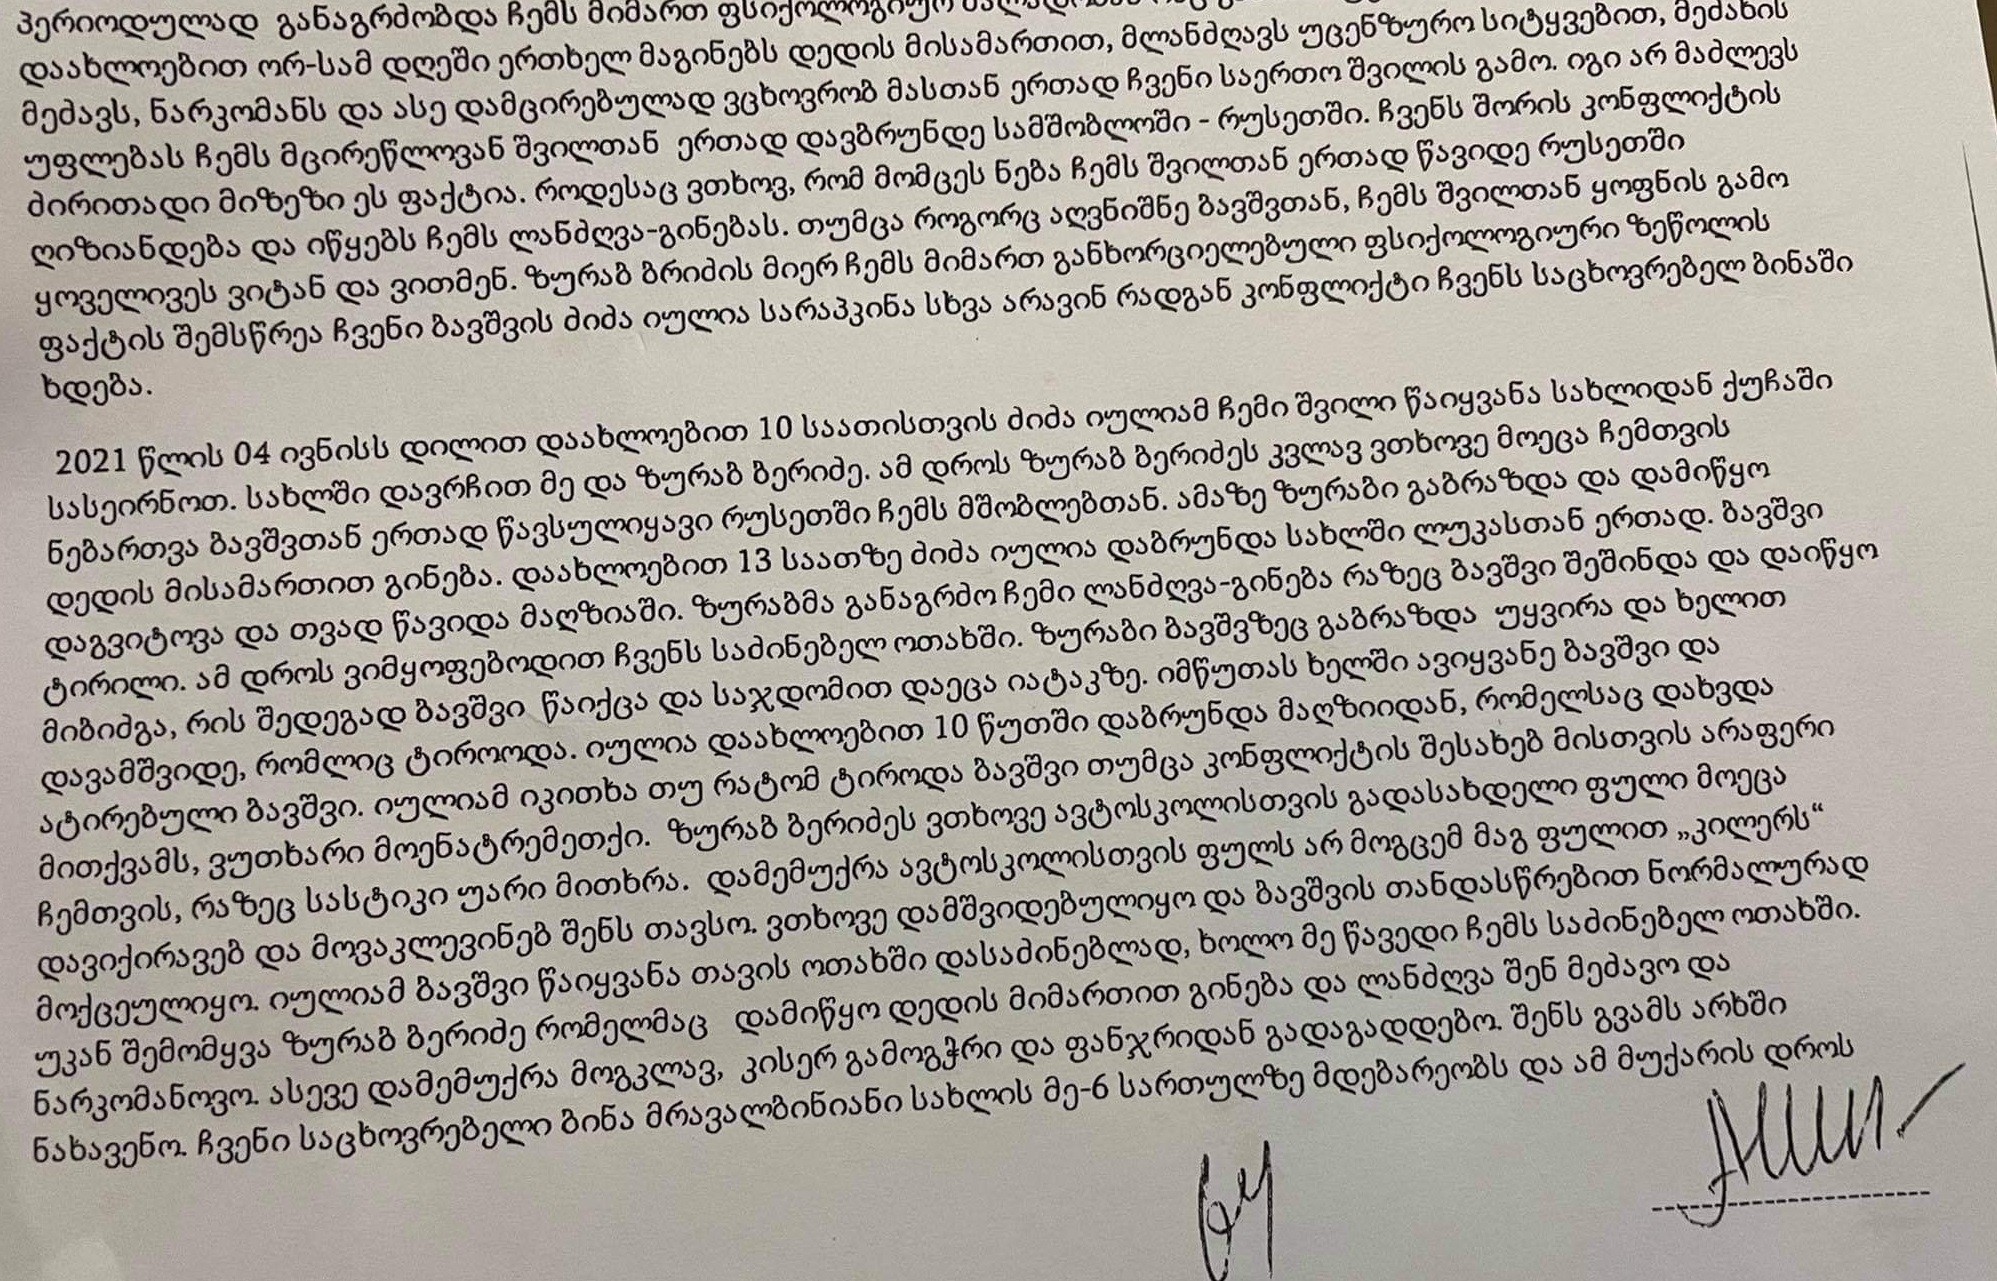 პერიოდულად განაგრძობდა ჩემს მიმართ ფსიქოლოგიურ
დაახლოებით ორ-სამ დღეში ერთხელ მაგინებს დედის მისამართით, მლანძღავს უცენზურო სიტყვებით, მეძახის
მეძავს, ნარკომანს და ასე დამცირებულად ვცხოვრობ მასთან ერთად ჩვენი საერთო შვილის გამო. იგი არ მაძლევს
უფლებას ჩემს მცირეწლოვან შვილთან ერთად დავბრუნდე სამშობლოში - რუსეთში. ჩვენს შორის კონფლიქტის
ძირითადი მიზეზი ეს ფაქტია. როდესაც ვთხოვ, რომ მომცეს ნება ჩემს შვილთან ერთად წავიდე რუსეთში
ღიზიანდება და იწყებს ჩემს ლანძღვა-გინებას. თუმცა როგორც აღვნიშნე ბავშვთან, ჩემს შვილთან ყოფნის გამო
ყოველივეს ვიტან და ვითმენ. ზურაბ ბრიძის მიერ ჩემს მიმართ განხორციელებული ფსიქოლოგიური ზეწოლის
ფაქტის შემსწრეა ჩვენი ბავშვის ძიძა იულია სარაპკინა სხვა არავინ რადგან კონფლიქტი ჩვენს საცხოვრებელ ბინაში
ხდება.
2021 წლის 04 ივნისს დილით დაახლოებით 10 საათისთვის ძიძა იულიამ ჩემი შვილი წაიყვანა სახლიდან ქუჩაში
სასეირნოთ. სახლში დავრჩით მე და ზურაბ ბერიძე. ამ დროს ზურაბ ბერიძეს კვლავ ვთხოვე მოეცა ჩემთვის
ნებართვა ბავშვთან ერთად წავსულიყავი რუსეთში ჩემს მშობლებთან. ამაზე ზურაბი გაბრაზდა და დამიწყო
დედის მისამართით გინება. დაახლოებით 13 საათზე ძიძა იულია დაბრუნდა სახლში ლუკასთან ერთად. ბავშვი
დაგვიტოვა და თვად წავიდა მაღზიაში. ზურაბმა განაგრძო ჩემი ლანძღვა-გინება რაზეც ბავშვი შეშინდა და დაიწყო
ტირილი. ამ დროს ვიმყოფებოდით ჩვენს საძინებელ ოთახში. ზურაბი ბავშვზეც გაბრაზდა უყვირა და ხელით
მიბიძგა, რის შედეგად ბავშვი წაიქცა და საჯდომით დაეცა იატაკზე. იმწუთას ხელში ავიყვანე ბავშვი და
დავამშვიდე, რომლიც ტიროოდა. იულია დაახლოებით 10 წუთში დაბრუნდა მაღზიიდან, რომელსაც დახვდა
ატირებული ბავშვი. იულიამ იკითხა თუ რატომ ტიროდა ბავშვი თუმცა კონფლიქტის შესახებ მისთვის არაფერი
მითქვამს, ვუთხარი მოენატრემეთქი. ზურაბ ბერიძეს ვთხოვე ავტოსკოლისთვის გადასახდელი ფული მოეცა
ჩემთვის, რაზეც სასტიკი უარი მითხრა. დამემუქრა ავტოსკოლისთვის ფულს არ მოგცემ მაგ ფულით „კილერს“
დავიქირავებ და მოვაკლევინებ შენს თავსო. ვთხოვე დამშვიდებულიყო და ბავშვის თანდასწრებით ნორმალურად
მოქცეულიყო. იულიამ ბავშვი წაიყვანა თავის ოთახში დასაძინებლად, ხოლო მე წავედი ჩემს საძინებელ ოთახში.
უკან შემომყვა ზურაბ ბერიძე რომელმაც დამიწყო დედის მიმართით გინება და ლანძღვა შენ მეძავო და
ნარკომანოვო. ასევე დამემუქრა მოგკლავ, კისერ გამოგჭრი და ფანჯრიდან გადაგადდებო. შენს გვამს არხში
ნახავენო. ჩვენი საცხოვრებელი ბინა მრავალბინიანი სახლის მე-6 სართულზე მდებარეობს და ამ მუქარის დროს